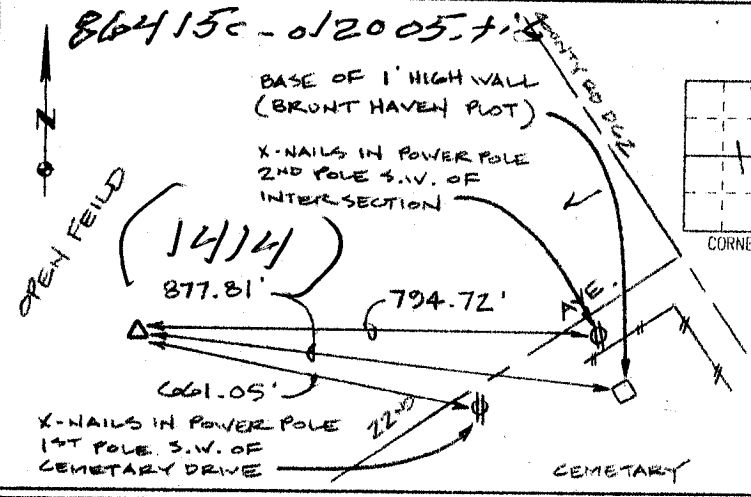 86415c-012005.tif
COUNTY RD D62
BASE OF 1' HIGH WALL
(BRUNT HAVEN PLOT)
N
X-NAILS IN POWER POLE
2ND POLE S.W. OF
INTERSECTION
OPEN FEILD
(1414)
CORNE
877.81'
794.72'
AVE.
661.05'
22ND
X-NAILS IN POWER POLE
1ST POLE S.W. OF
CEMETARY DRIVE
CEMETARY